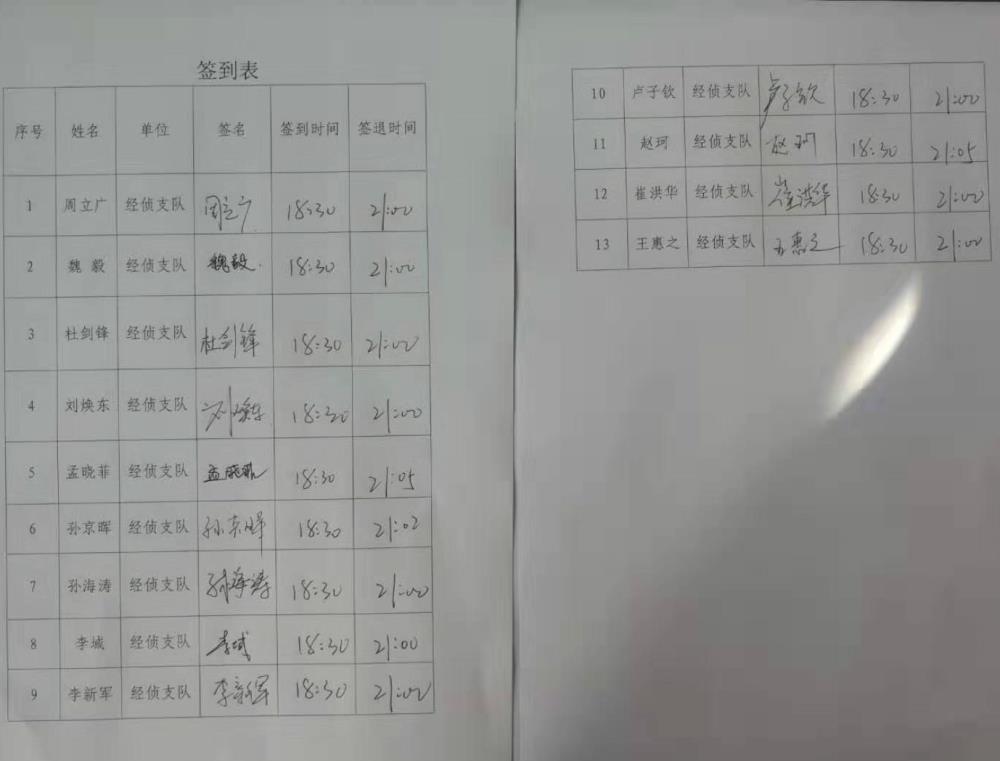 签到表
序号 姓名 单位 签名 签到时间 签退时间
1 周立广 经侦支队 周立广 18:30 21:00
2 魏毅 经侦支队 魏毅 18:30 21:00
3 杜剑锋 经侦支队 杜剑锋 18:30 21:00
4 刘焕东 经侦支队 刘焕东 18:30 21:00
5 孟晓菲 经侦支队 孟晓菲 18:30 21:05
6 孙京晖 经侦支队 孙京晖 18:30 21:02
7 孙海涛 经侦支队 孙海涛 18:30 21:00
8 李城 经侦支队 李城 18:30 21:00
9 李新军 经侦支队 李新军 18:30 21:00
10 卢子钦 经侦支队 卢子钦 18:30 21:00
11 赵珂 经侦支队 赵珂 18:30 21:05
12 崔洪华 经侦支队 崔洪华 18:30 21:00
13 王惠之 经侦支队 王惠之 18:30 21:00